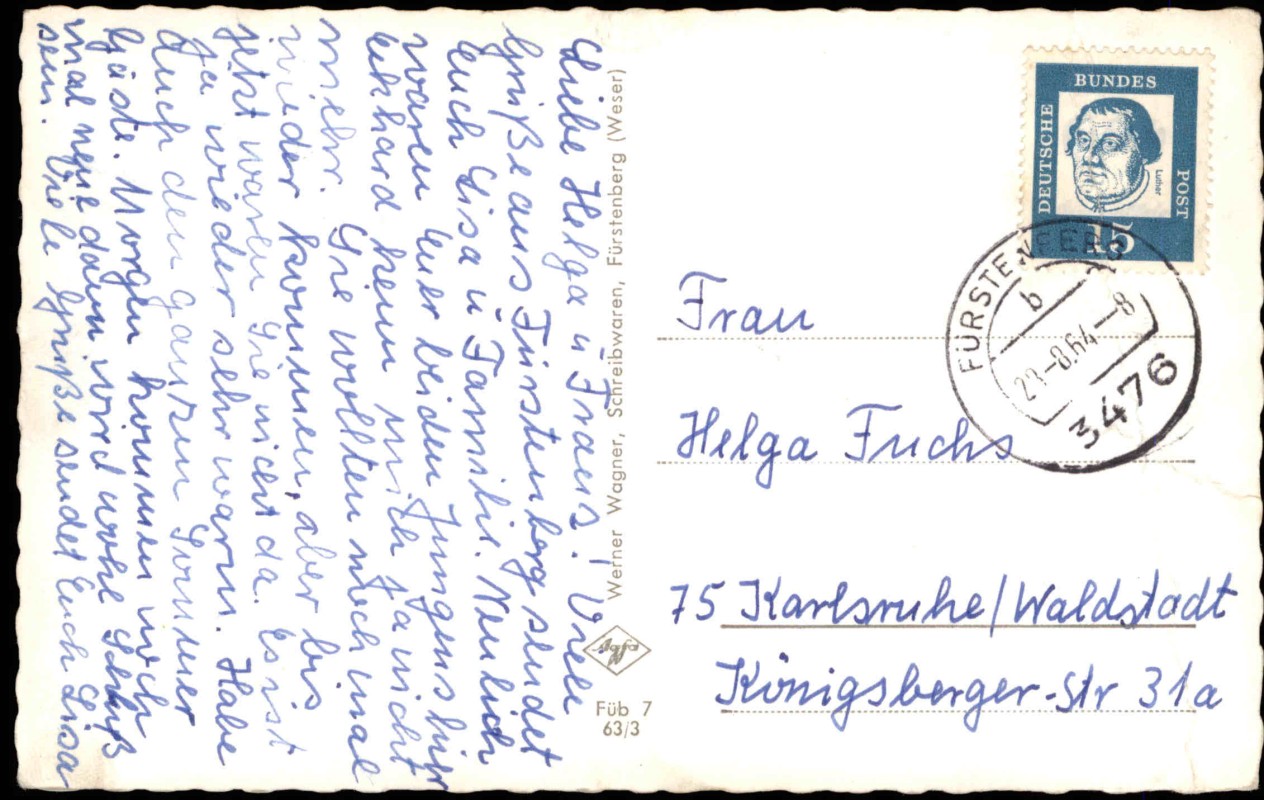 Liebe Helga u Frans! Viele
Grüße aus Fürstenberg sendet
Euch Lisa u Familie. Neulich
waren Eure beiden Jungens hier
Ekhard kenn wich ja nicht
mehr. Sie wollten noch mal
wieder kommen, aber bis
jetzt waren Sie nicht da. Es ist
ja wieder sehr warm. Habe
Auch den ganzen Sommer
Gäste. Morgen kommen noch
mal neue dann wird wohl Schluß
sein. Viele Grüße sendet Euch Lisa
Werner Wagner, Schreibwaren, Fürstenberg (Weser)
Füb 7
63/3
DEUTSCHE
BUNDES
POST
Luther
15
FÜRSTENBERG
b
28.-8.64-8
3476
Frau
Helga Fuchs
75 Karlsruhe/Waldstadt
Königsberger-Str 31a